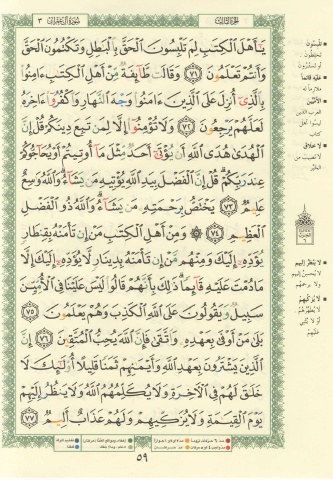 الجزء الثالث
سورة آل عمران ٣
يَٰٓأَهْلَ ٱلْكِتَٰبِ لِمَ تَلْبِسُونَ ٱلْحَقَّ بِٱلْبَٰطِلِ وَتَكْتُمُونَ ٱلْحَقَّ
وَأَنتُمْ تَعْلَمُونَ ٧١ وَقَالَت طَّآئِفَةٌ مِّنْ أَهْلِ ٱلْكِتَٰبِ ءَامِنُوا۟
بِٱلَّذِىٓ أُنزِلَ عَلَى ٱلَّذِينَ ءَامَنُوا۟ وَجْهَ ٱلنَّهَارِ وَٱكْفُرُوٓا۟ ءَاخِرَهُۥ
لَعَلَّهُمْ يَرْجِعُونَ ٧٢ وَلَا تُؤْمِنُوٓا۟ إِلَّا لِمَن تَبِعَ دِينَكُمْ قُلْ إِنَّ
ٱلْهُدَىٰ هُدَى ٱللَّهِ أَن يُؤْتَىٰٓ أَحَدٌ مِّثْلَ مَآ أُوتِيتُمْ أَوْ يُحَآجُّوكُمْ
عِندَ رَبِّكُمْ قُلْ إِنَّ ٱلْفَضْلَ بِيَدِ ٱللَّهِ يُؤْتِيهِ مَن يَشَآءُ وَٱللَّهُ وَٰسِعٌ
عَلِيمٌ ٧٣ يَخْتَصُّ بِرَحْمَتِهِۦ مَن يَشَآءُ وَٱللَّهُ ذُو ٱلْفَضْلِ
ٱلْعَظِيمِ ٧٤ ۞ وَمِنْ أَهْلِ ٱلْكِتَٰبِ مَنْ إِن تَأْمَنْهُ بِقِنطَارٍ
يُؤَدِّهِۦٓ إِلَيْكَ وَمِنْهُم مَّنْ إِن تَأْمَنْهُ بِدِينَارٍ لَّا يُؤَدِّهِۦٓ إِلَيْكَ إِلَّا
مَا دُمْتَ عَلَيْهِ قَآئِمًا ذَٰلِكَ بِأَنَّهُمْ قَالُوا۟ لَيْسَ عَلَيْنَا فِى ٱلْأُمِّيِّـۧنَ
سَبِيلٌ وَيَقُولُونَ عَلَى ٱللَّهِ ٱلْكَذِبَ وَهُمْ يَعْلَمُونَ ٧٥
بَلَىٰ مَنْ أَوْفَىٰ بِعَهْدِهِۦ وَٱتَّقَىٰ فَإِنَّ ٱللَّهَ يُحِبُّ ٱلْمُتَّقِينَ ٧٦ إِنَّ
ٱلَّذِينَ يَشْتَرُونَ بِعَهْدِ ٱللَّهِ وَأَيْمَٰنِهِمْ ثَمَنًا قَلِيلًا أُو۟لَٰٓئِكَ لَا
خَلَٰقَ لَهُمْ فِى ٱلْءَاخِرَةِ وَلَا يُكَلِّمُهُمُ ٱللَّهُ وَلَا يَنظُرُ إِلَيْهِمْ
يَوْمَ ٱلْقِيَٰمَةِ وَلَا يُزَكِّيهِمْ وَلَهُمْ عَذَابٌ أَلِيمٌ ٧٧
٥٩
تلبسون
تخلطون
أو تسترون
عليه قائماً
ملازماً له
الأميين
العرب الذين
ليسوا أهل
كتاب
لا خلاق
لا ينظر إليهم
لا يحسن إليهم
ولا يرحمهم
لا يزكيهم
لا يطهرهم